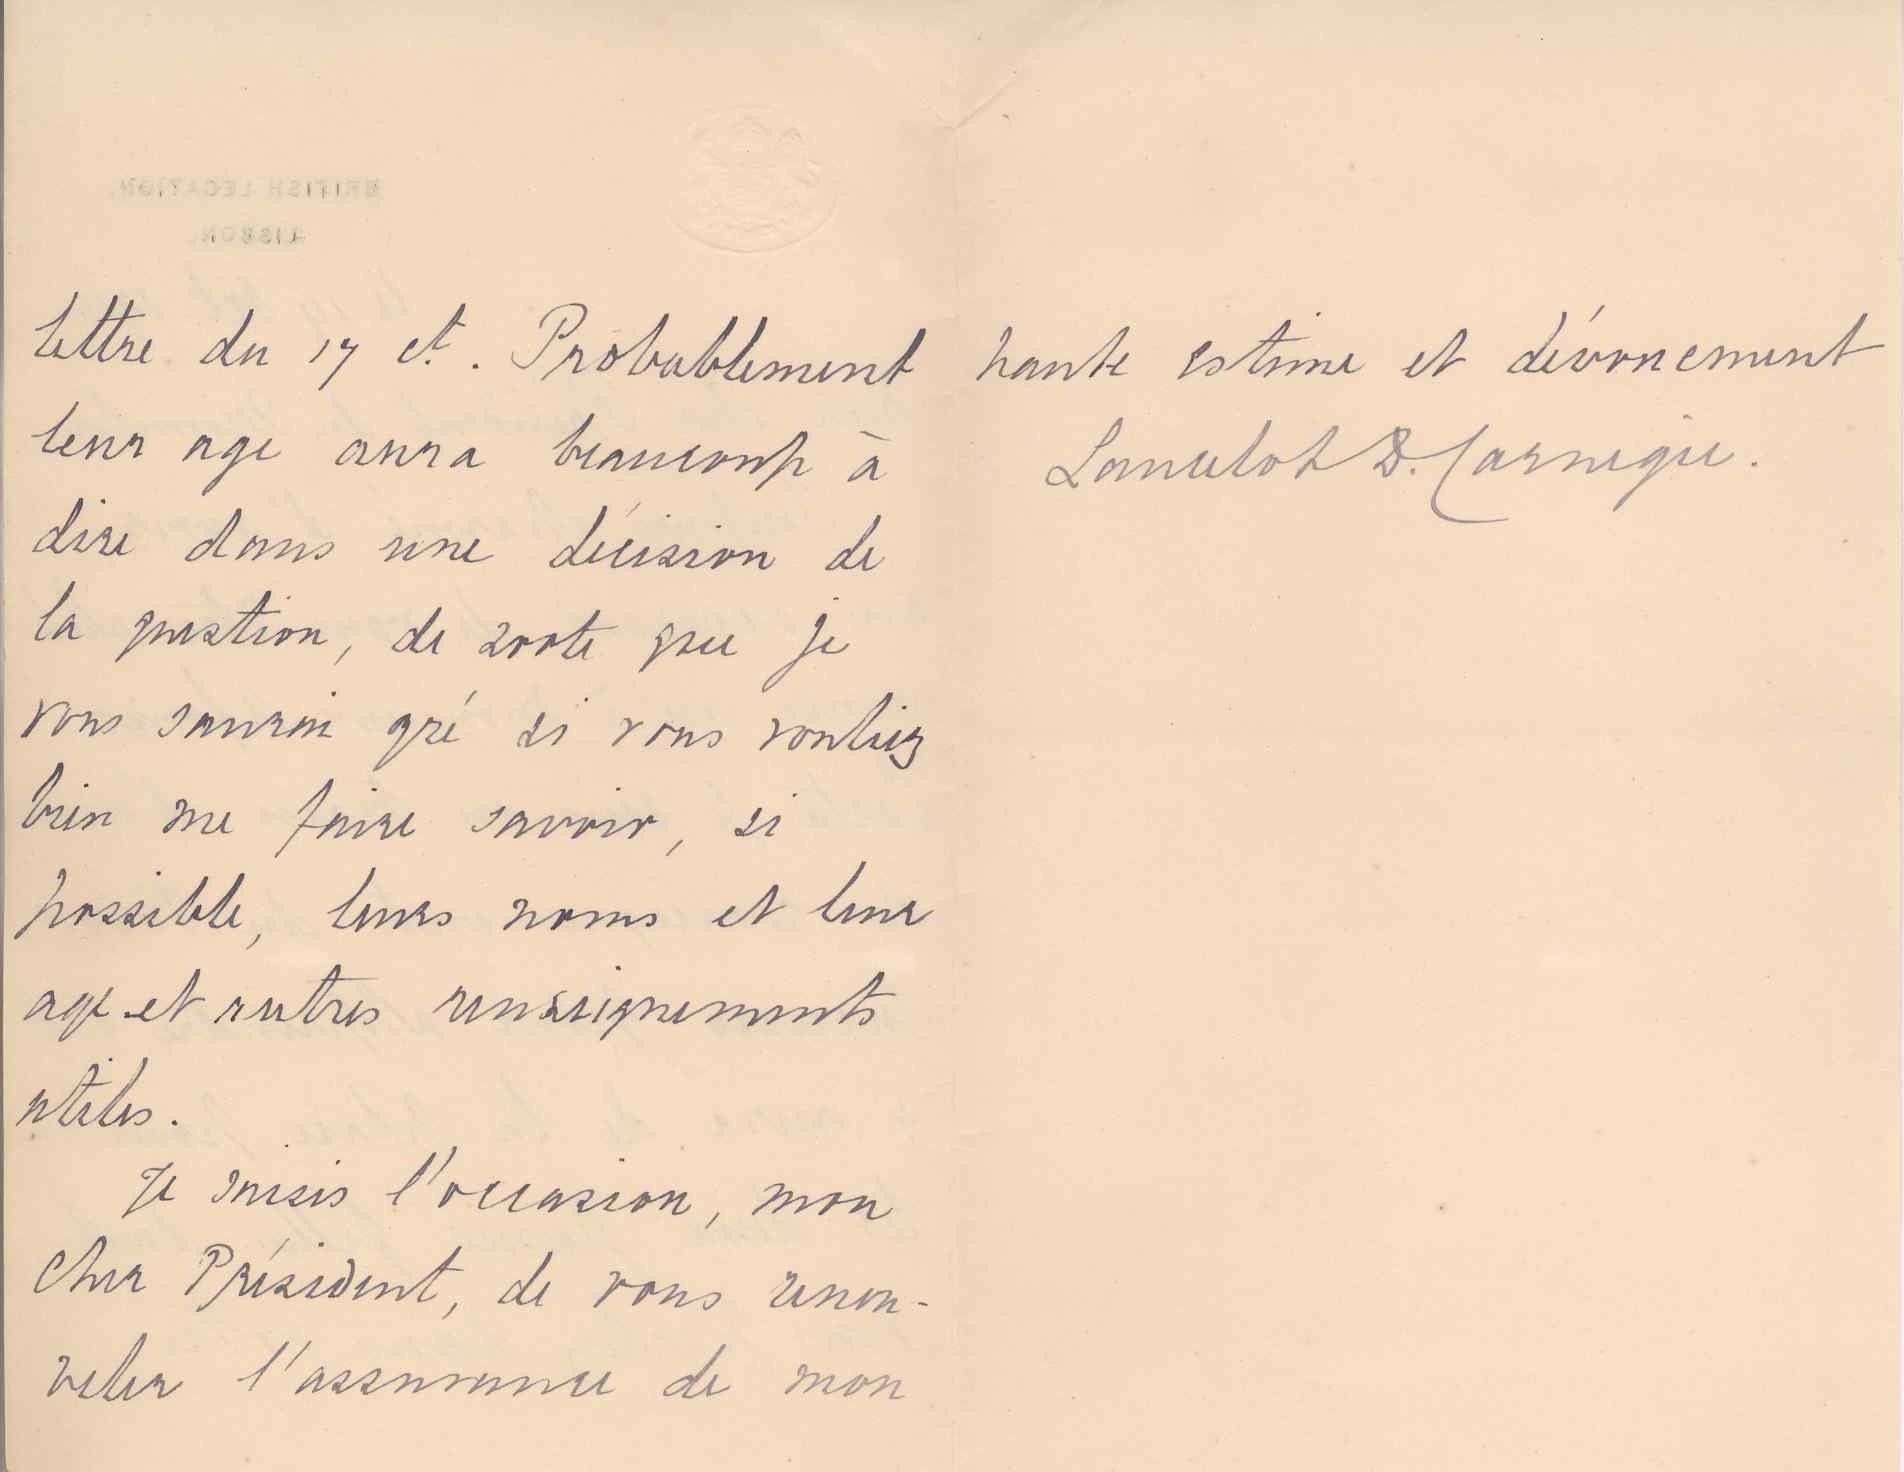 BRITISH LEGATION.
LISBON.
lettre du 17 ct. Probablement
leur age aura beaucoup à
dire dans une décision de
la question, de sorte que je
vous saurai gré si vous vouliez
bien me faire savoir, si
possible, leurs noms et leur
age et autres renseignements
utiles.
Je saisis l'occasion, mon
cher Président, de vous renou-
veler l'assurance de mon
haute estime et dévouement
Lancelot D. Carnegie.